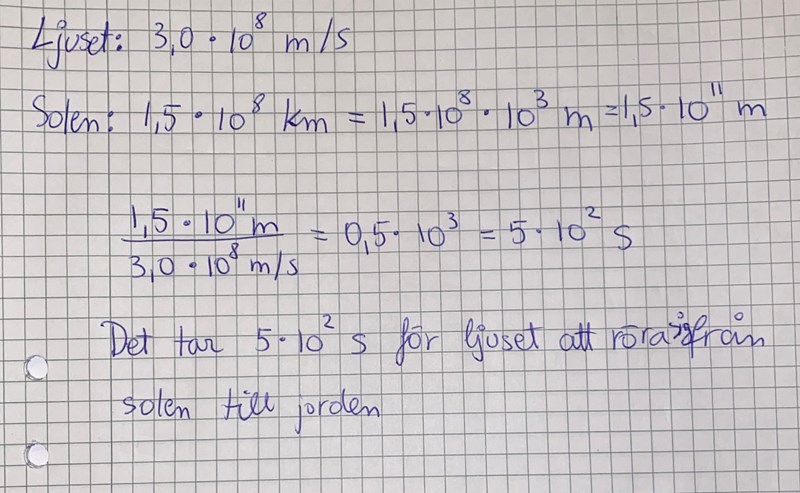 Ljuset: 3,0 · 10⁸ m/s
Solen: 1,5 · 10⁸ km = 1,5·10⁸ · 10³ m = 1,5 · 10¹¹ m
1,5 · 10¹¹ m / 3,0 · 10⁸ m/s = 0,5 · 10³ = 5 · 10² s
Det tar 5 · 10² s för ljuset att röra sig från
solen till jorden